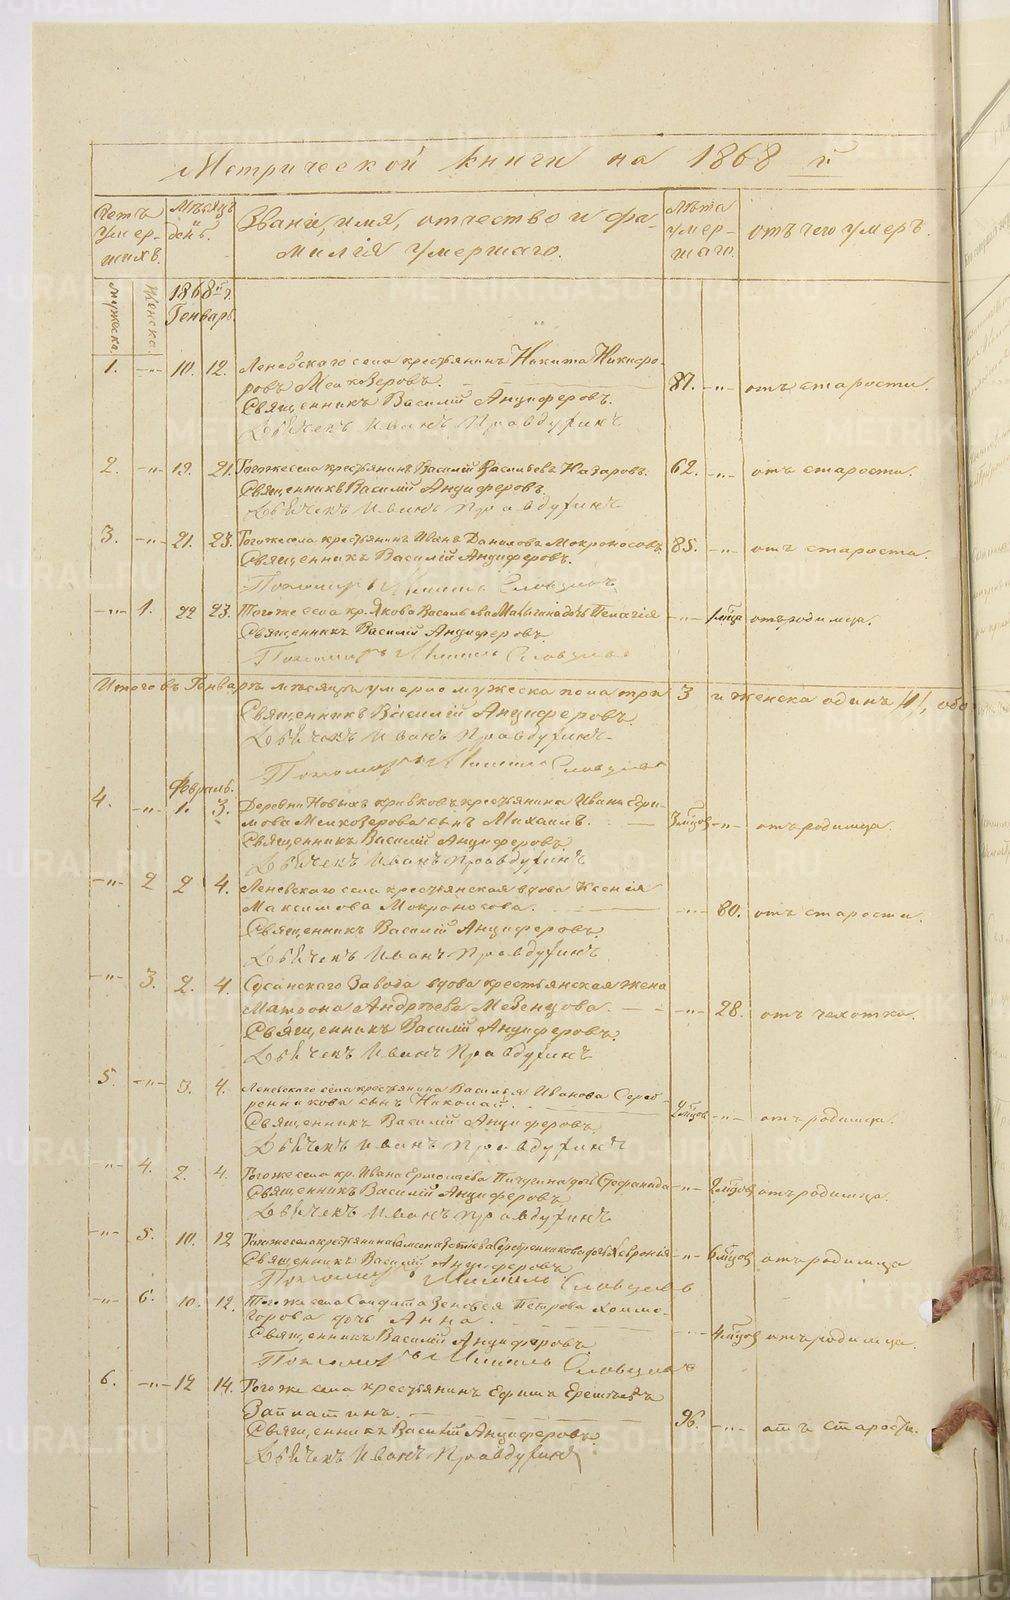 METRIKI.GASO-URAL.RU
Метрической книги на 1868 г.
Счетъ умершихъ.
Мѣсяцъ и день.
Званіе, имя, отчество и фамилія умершаго.
Лѣта умершаго.
отъ чего умеръ.
мужеска. женска.
1868 г.
Генварь.
1. -"- 10. 12. Леневскаго села крестьянинъ Никита Никифоровъ Мелкозеровъ. 87. -"- отъ старости.
Священникъ Василій Анциферовъ.
Дьячекъ Иванъ Правдухинъ
2. -"- 19. 21. Тогоже села крестьянинъ Василій Васильевъ Назаровъ. 62. -"- отъ старости.
Священникъ Василій Анциферовъ.
Дьячекъ Иванъ Правдухинъ
3. -"- 21. 23. Тогоже села крестьянинъ Иванъ Даниловъ Мокроносовъ. 85. -"- отъ старости.
Священникъ Василій Анциферовъ.
Пономарь Словцовъ
-"- 1. 22 23. Тогоже села кр. Якова Васильева дочь Пелагія -"- 1 мца отъ родимца.
Священникъ Василій Анциферовъ.
Пономарь Словцовъ
Итого въ Генварѣ мѣсяцѣ умерло мужеска пола три 3 и женска одинъ /1/, обо
Священникъ Василій Анциферовъ.
Дьячекъ Иванъ Правдухинъ
Пономарь Словцовъ
Февраль.
4. -"- 1. 3. Деревни Новыхъ кривковъ крестьянина Ивана Ефимова Мелкозерова сынъ Михаилъ. 3 мцов -"- отъ родимца.
Священникъ Василій Анциферовъ.
Дьячекъ Иванъ Правдухинъ
-"- 2 2 4. Леневскаго села крестьянская вдова Ксенія
Максимова Мокроносова. -"- 80. отъ старости.
Священникъ Василій Анциферовъ.
Дьячекъ Иванъ Правдухинъ
-"- 3. 2. 4. Сусанскаго Завода вдова крестьянская жена
Матрона Андреева Мезенцова. -"- 28. отъ чахотки.
Священникъ Василій Анциферовъ.
Дьячекъ Иванъ Правдухинъ
5. -"- 3. 4. Леневскаго села крестьянина Василья Иванова Серебренникова сынъ Николай. 2 мцов -"- отъ родимца.
Священникъ Василій Анциферовъ.
Дьячекъ Иванъ Правдухинъ
-"- 4. 2. 4. Тогоже села кр. Ивана Ермолаева Пичугина дочь Стефанида -"- 2 мцов отъ родимца.
Священникъ Василій Анциферовъ.
Дьячекъ Иванъ Правдухинъ
-"- 5. 10. 12 Тогоже села крестьянина Серебренникова дочь Хевронія -"- 6 мцов отъ родимца
Священникъ Василій Анциферовъ
Пономарь Словцовъ
-"- 6. 10. 12. Тогоже села Солдата Петрова Холмогорова дочь Анна. 4 мцов отъ родимца.
Священникъ Василій Анциферовъ.
Пономарь Словцовъ
6. -"- 12 14. Тогоже села крестьянинъ Ефимъ
Заплатинъ. 96. -"- отъ старости.
Священникъ Василій Анциферовъ.
Дьячекъ Иванъ Правдухинъ